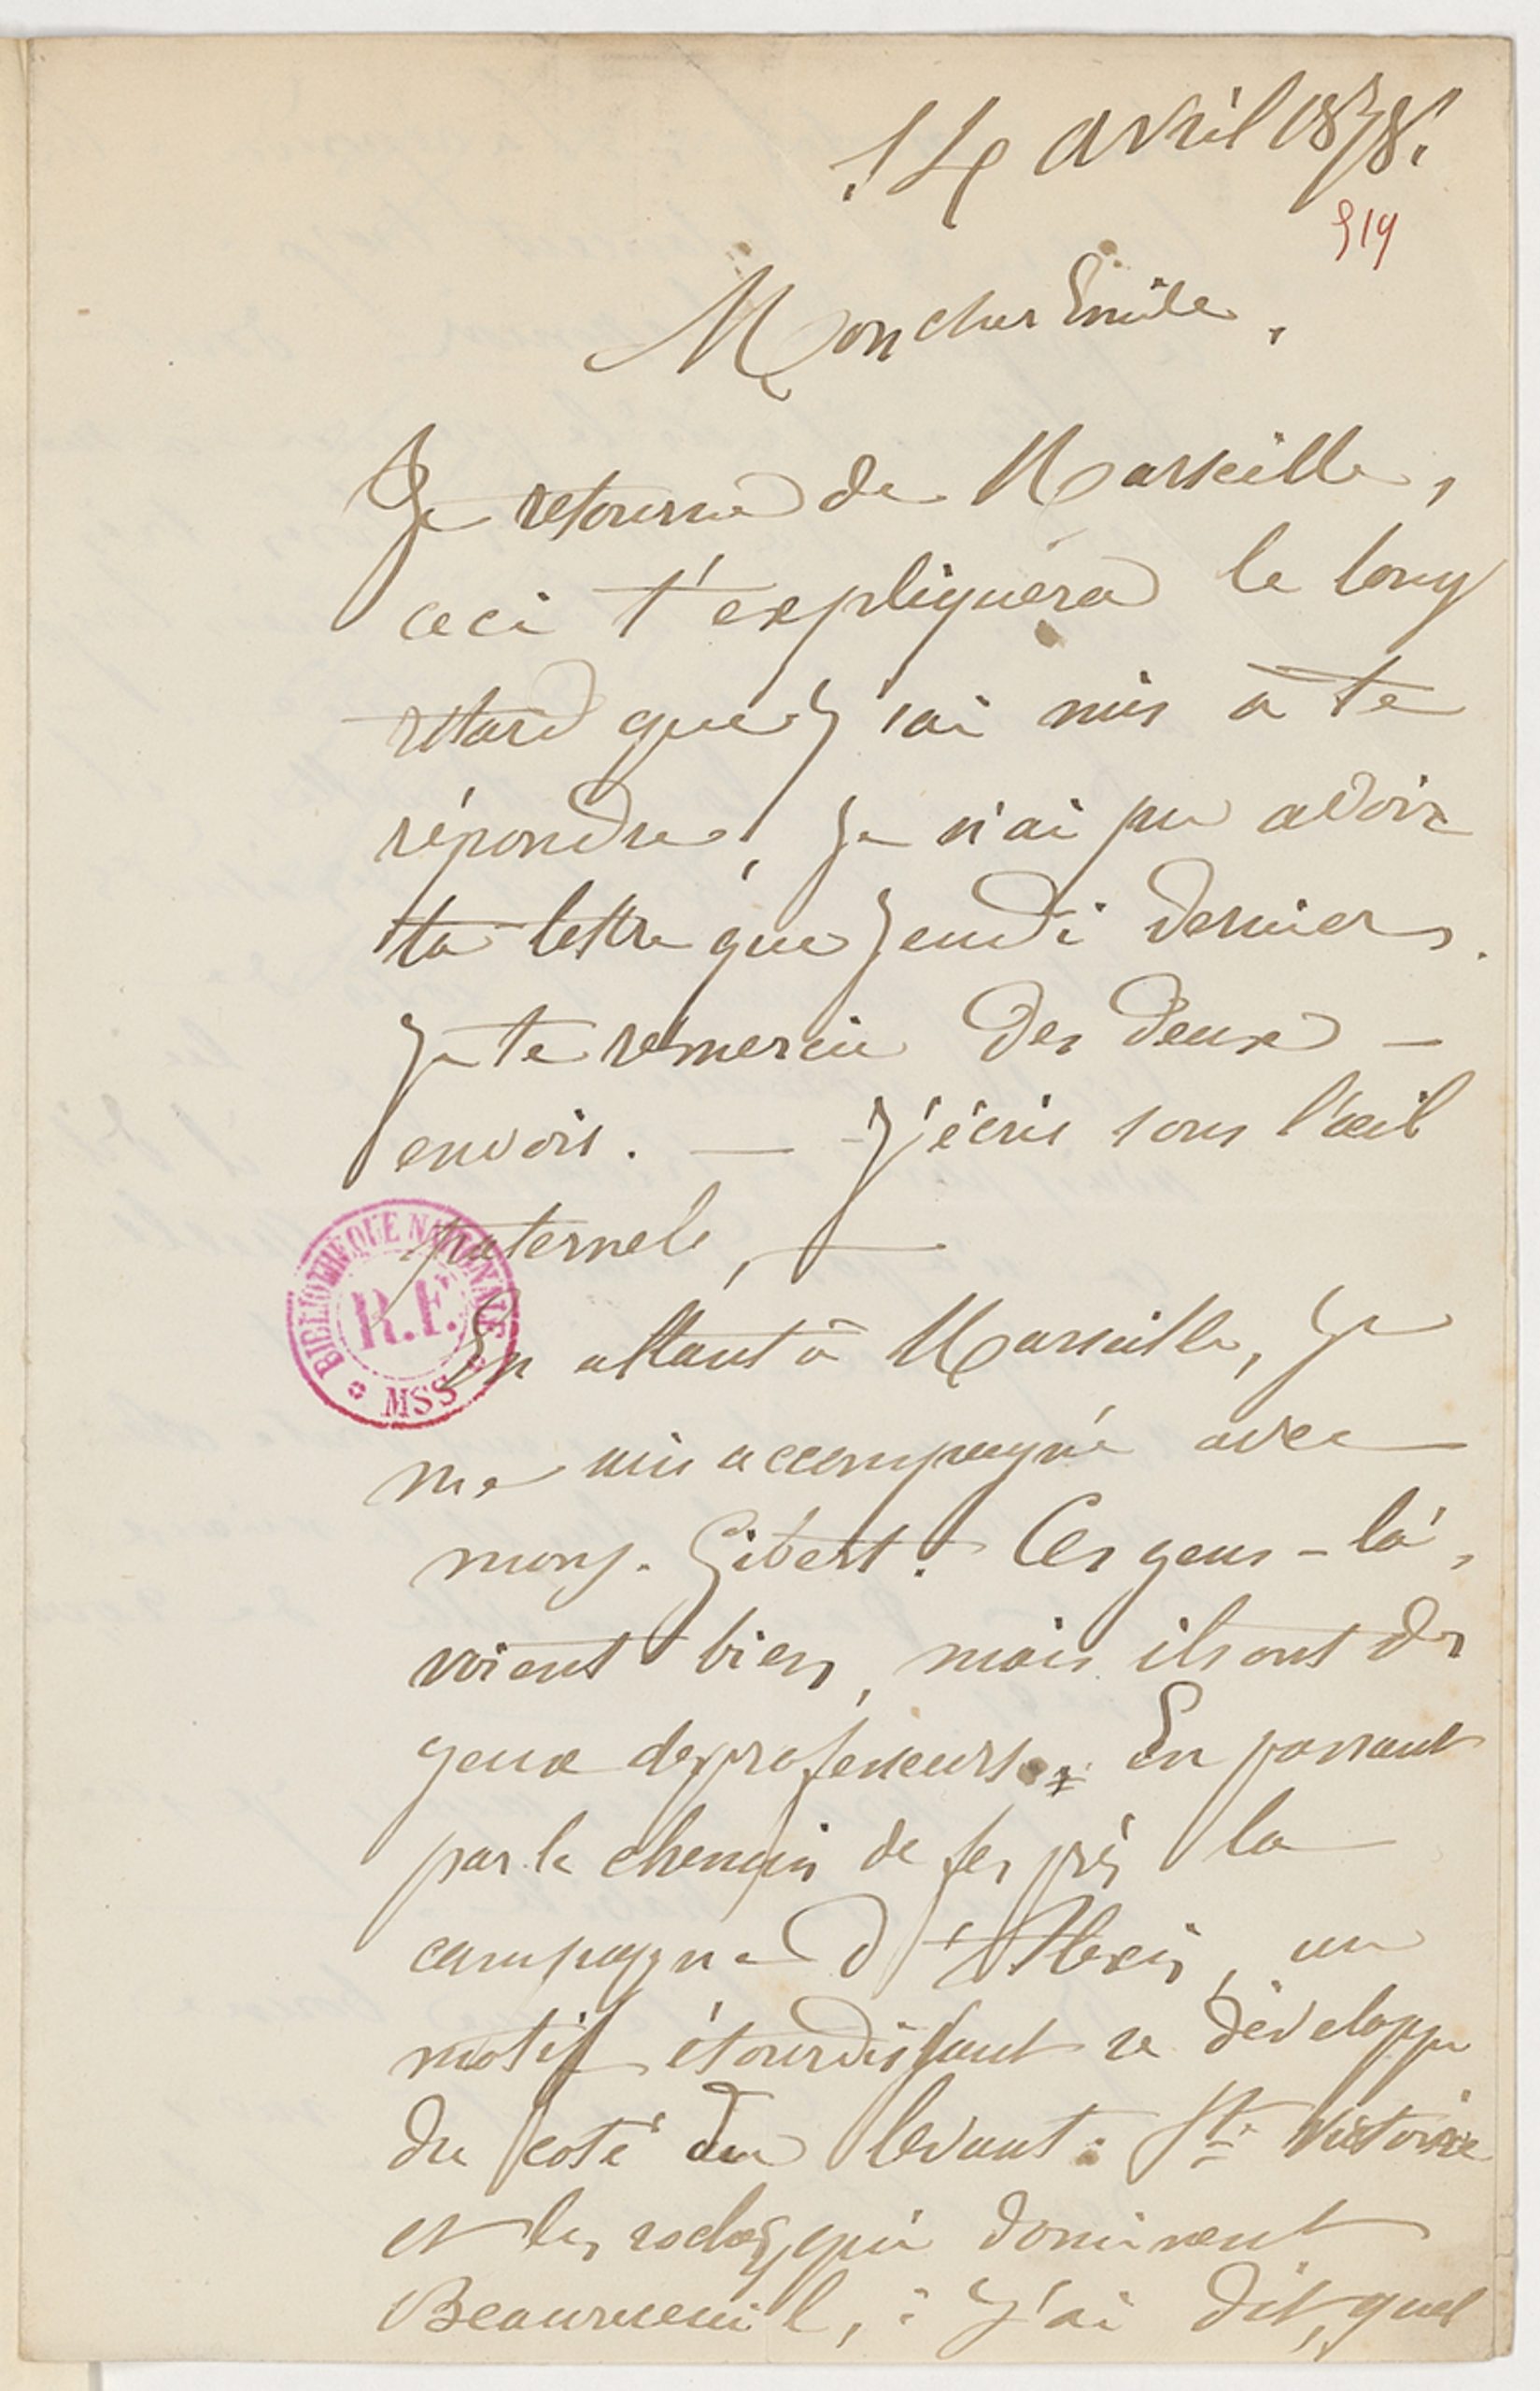 14 avril 1878.
319
Mon cher Emile,
Je retourne de Marseille,
ceci t'expliquera le long
retard que j'ai mis à te
répondre, je n'ai pu avoir
ta lettre que jeudi dernier.
Je te remercie des deux —
envois. — J'écris sous l'œil
paternel, —
BIBLIOTHEQUE NATIONALE
R.F.
MSS
En allant à Marseille, je
me suis accompagné avec
mons. Gibert. Ces gens-là,
voient bien, mais ils ont des
yeux de professeurs. En passant
par le chemin de fer près la
campagne d'Alexis, un
motif étourdissant se développe
du coté du levant: Ste Victoire
et les rochers qui dominent
Beaurecueil, : j'ai dit, quel